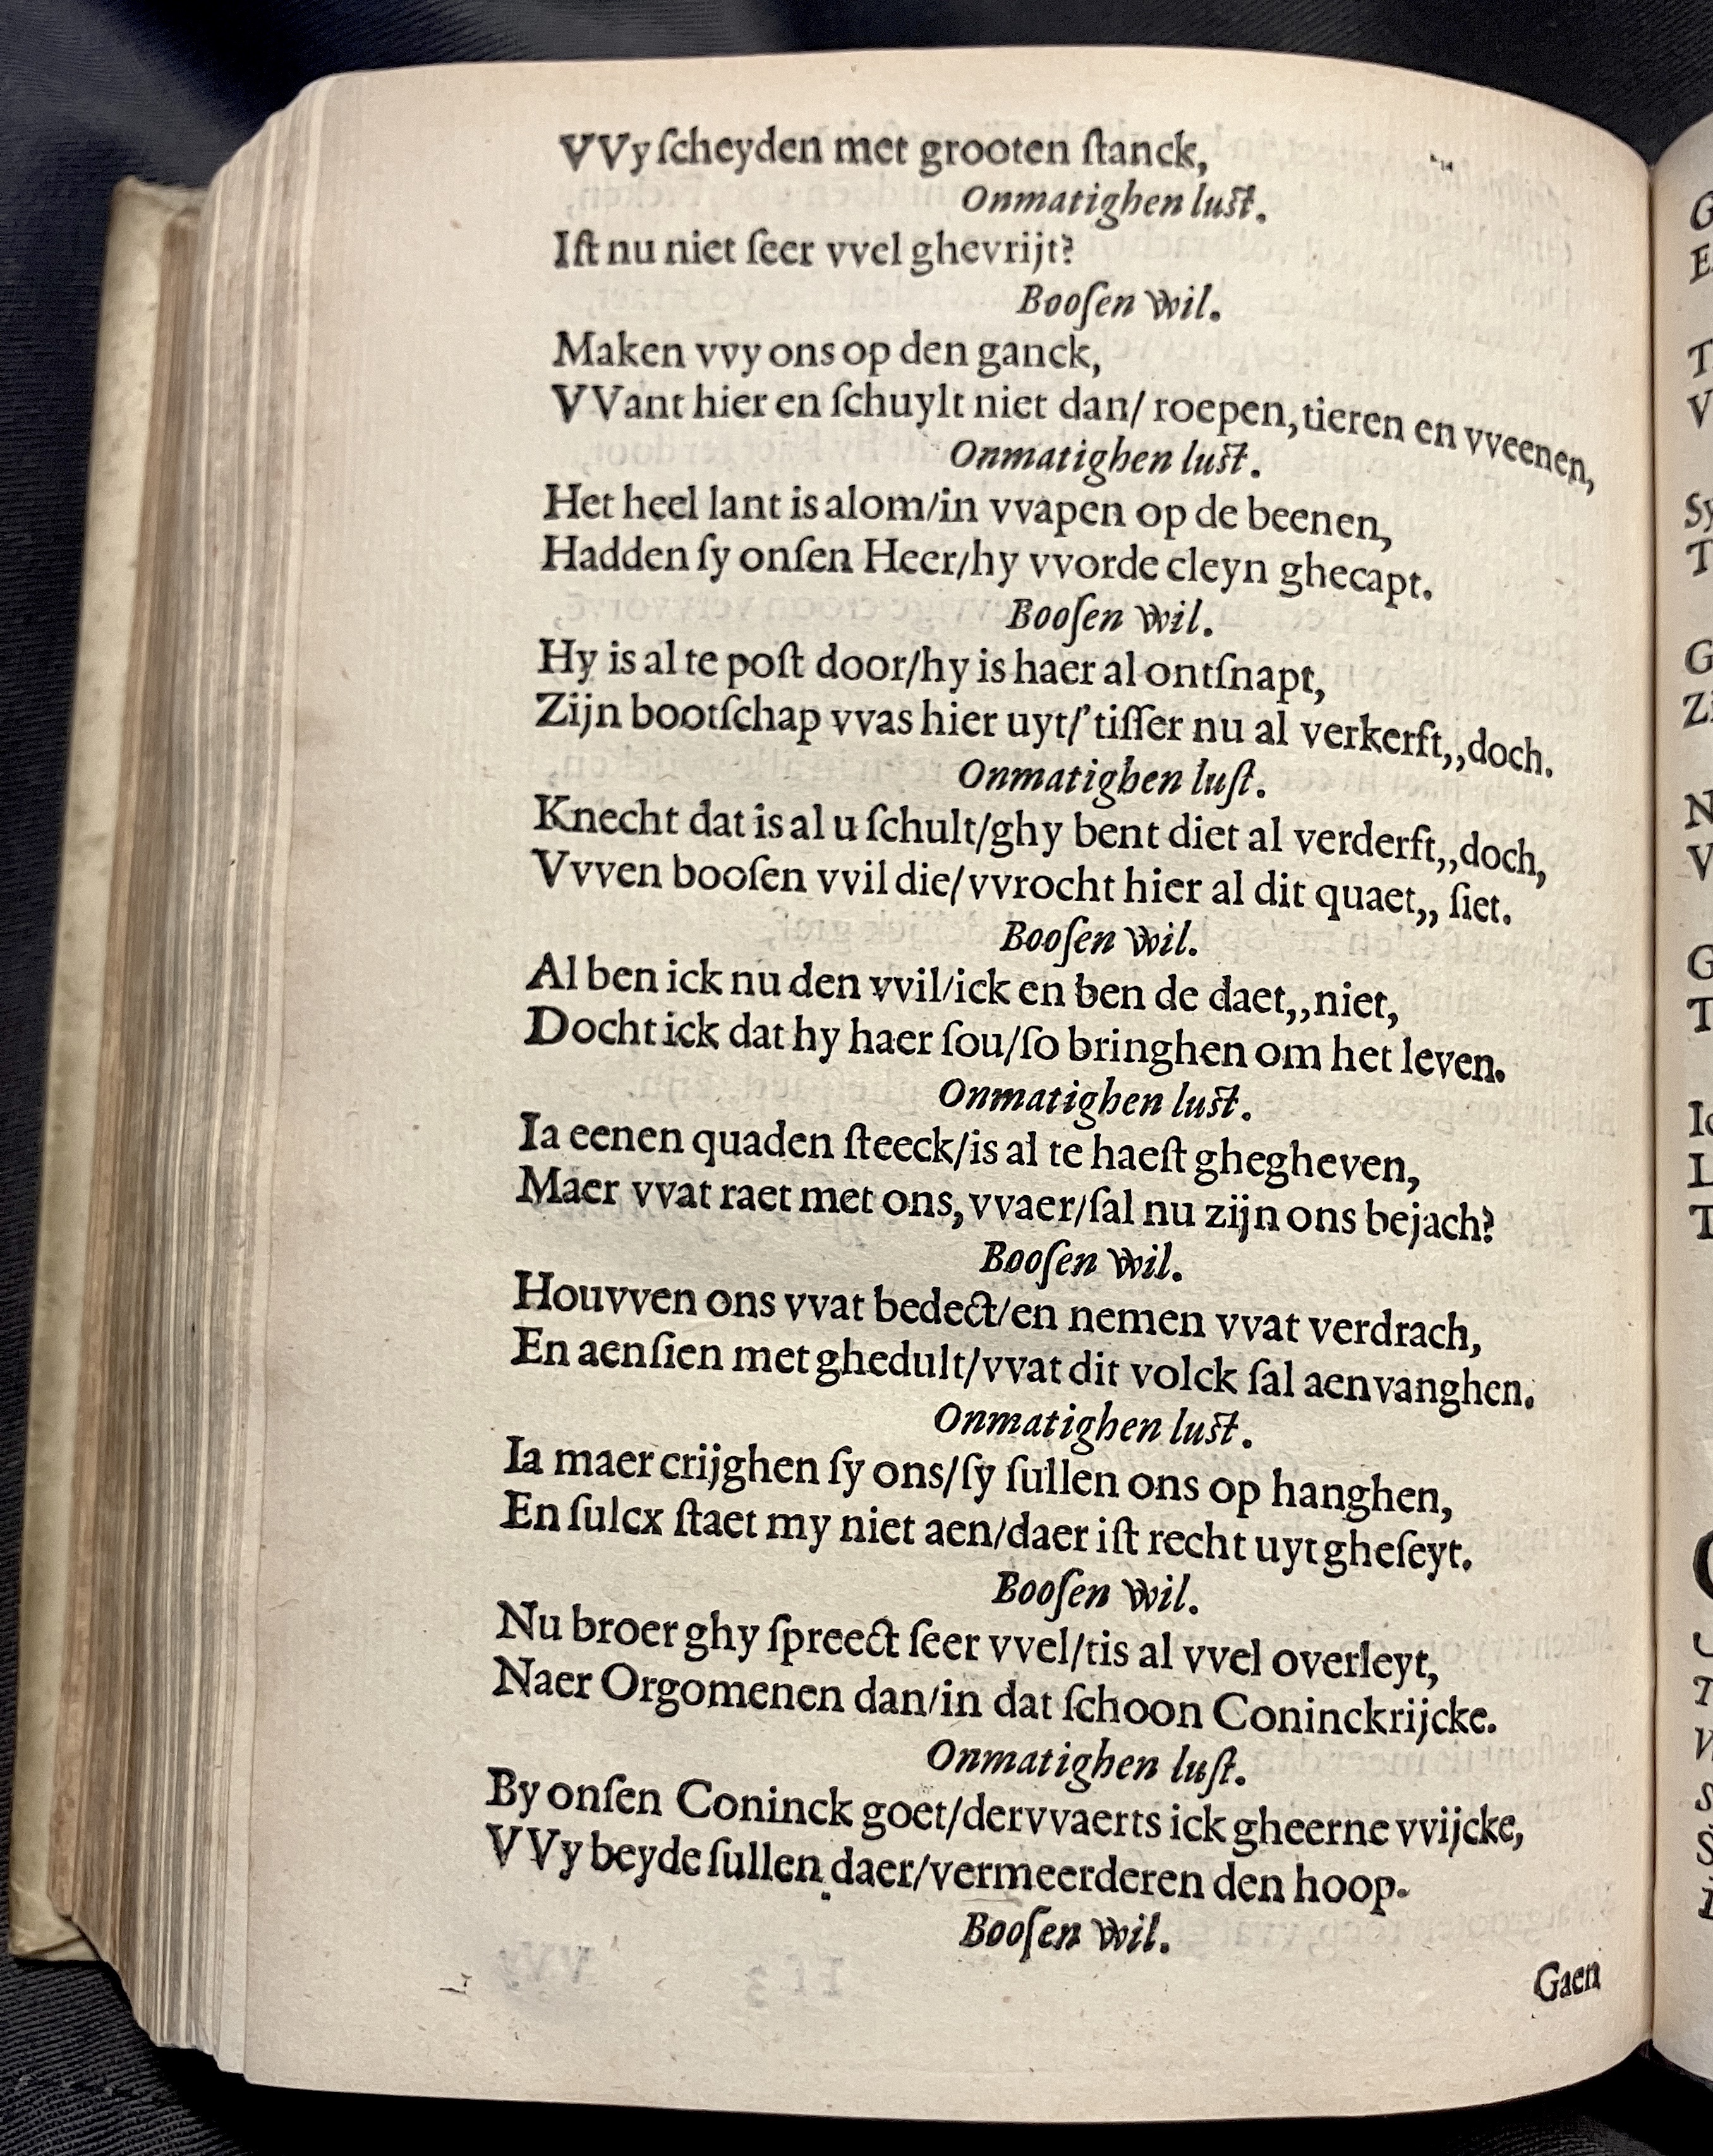 VVy ſcheyden met grooten ſtanck,
Onmatighen luſt.
Iſt nu niet ſeer vvel ghevrijt?
Booſen wil.
Maken vvy ons op den ganck,
VVant hier en ſchuylt niet dan/ roepen, tieren en vveenen,
Onmatighen luſt.
Het heel lant is alom/in vvapen op de beenen,
Hadden ſy onſen Heer/hy vvorde cleyn ghecapt.
Booſen wil.
Hy is al te poſt door/hy is haer al ontſnapt,
Zijn bootſchap vvas hier uyt/'tiſſer nu al verkerft,,doch.
Onmatighen luſt.
Knecht dat is al u ſchult/ghy bent diet al verderft,,doch,
Vvven booſen vvil die/vvrocht hier al dit quaet,, ſiet.
Booſen wil.
Al ben ick nu den vvil/ick en ben de daet,,niet,
Docht ick dat hy haer ſou/ſo bringhen om het leven.
Onmatighen luſt.
Ia eenen quaden ſteeck/is al te haeſt ghegheven,
Maer vvat raet met ons, vvaer/ſal nu zijn ons bejach?
Booſen wil.
Houvven ons vvat bedect/en nemen vvat verdrach,
En aenſien met ghedult/vvat dit volck ſal aenvanghen.
Onmatighen luſt.
Ia maer crijghen ſy ons/ſy ſullen ons op hanghen,
En ſulcx ſtaet my niet aen/daer iſt recht uyt gheſeyt.
Booſen wil.
Nu broer ghy ſpreect ſeer vvel/tis al vvel overleyt,
Naer Orgomenen dan/in dat ſchoon Coninckrijcke.
Onmatighen luſt.
By onſen Coninck goet/dervvaerts ick gheerne vvijcke,
VVy beyde ſullen daer/vermeerderen den hoop.
Booſen wil.
Gaen